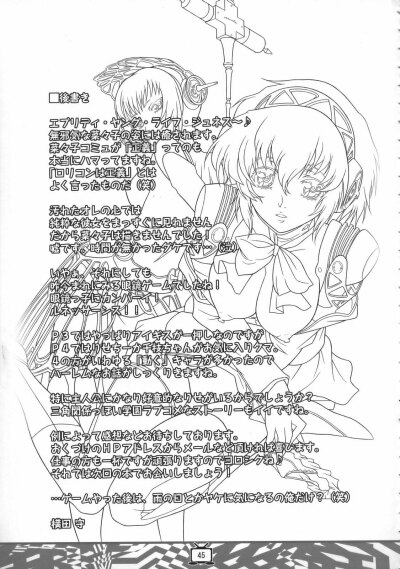 ■後書き
エブリディ・ヤング・ライフ・ジュネス~♪
無邪気な菜々子の姿には癒されます。
菜々子コミュが『正義』ってのも
本当にハマってますね。
『ロリコンは正義』とは
よく言ったものだ(笑)
汚れたオレの心では
純粋な彼女をまっすぐに見れません
だから菜々子は描きませんでした!
嘘です、時間が無かったダケです…(泣)
いやぁ、それにしても
昨今まれにみる眼鏡ゲームでしたね!
眼鏡っ子にカンパーイ!
ルネッサーンス!!
P3ではやっぱりアイギスが一押しなのですが
P4ではりせちーか千枝ちゃんがお気に入りクマ。
4の方がいわゆる『動く』キャラが多かったので
ハーレムなお話がしっくりきますね。
特に主人公にかなり好意的なりせがいるからでしょうか?
三角関係っぽい学園ラブコメなストーリーもイイですね。
例によって感想などお待ちしております。
おくづけのHPアドレスからメールなど頂ければ喜びます。
仕事の方も一杯ですが頑張りますのでヨロシクね♪
それでは次回の本でお会いしましょう!
…ゲームやった後は、雨の日とかヤケに気になるの俺だけ?(笑)
横田 守
45